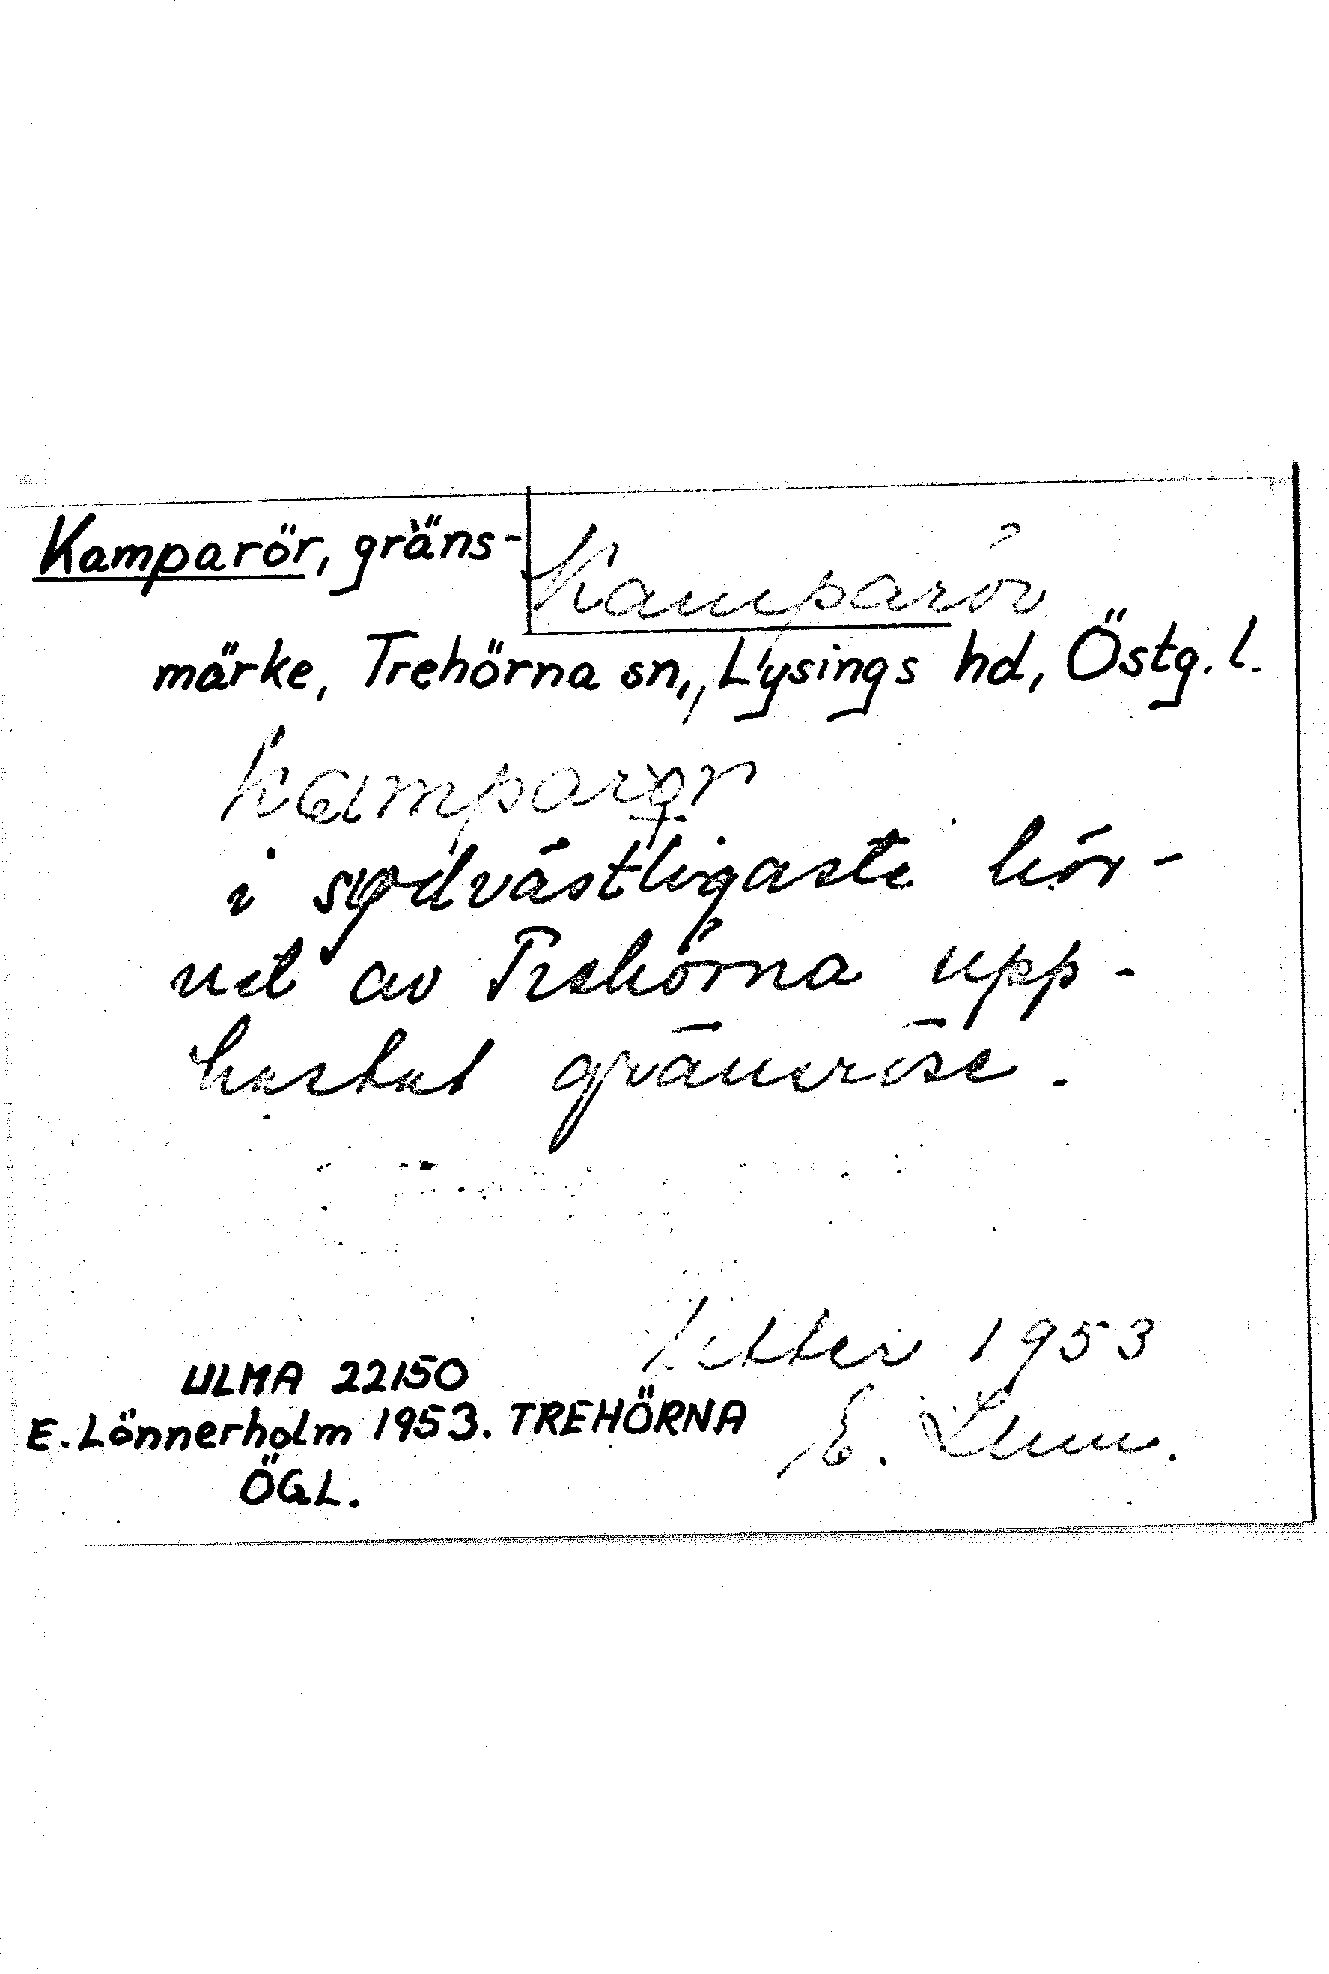 Kamparör, gräns-
Kamparör
märke, Trehörna sn, Lysings hd, Östg. l.
i sydvästligaste hör-
net av Trehörna upp-
kastat gränsröse.
1953
ULMA 22150
E. Lönnerholm 1953. TREHÖRNA
E.
ÖGL.